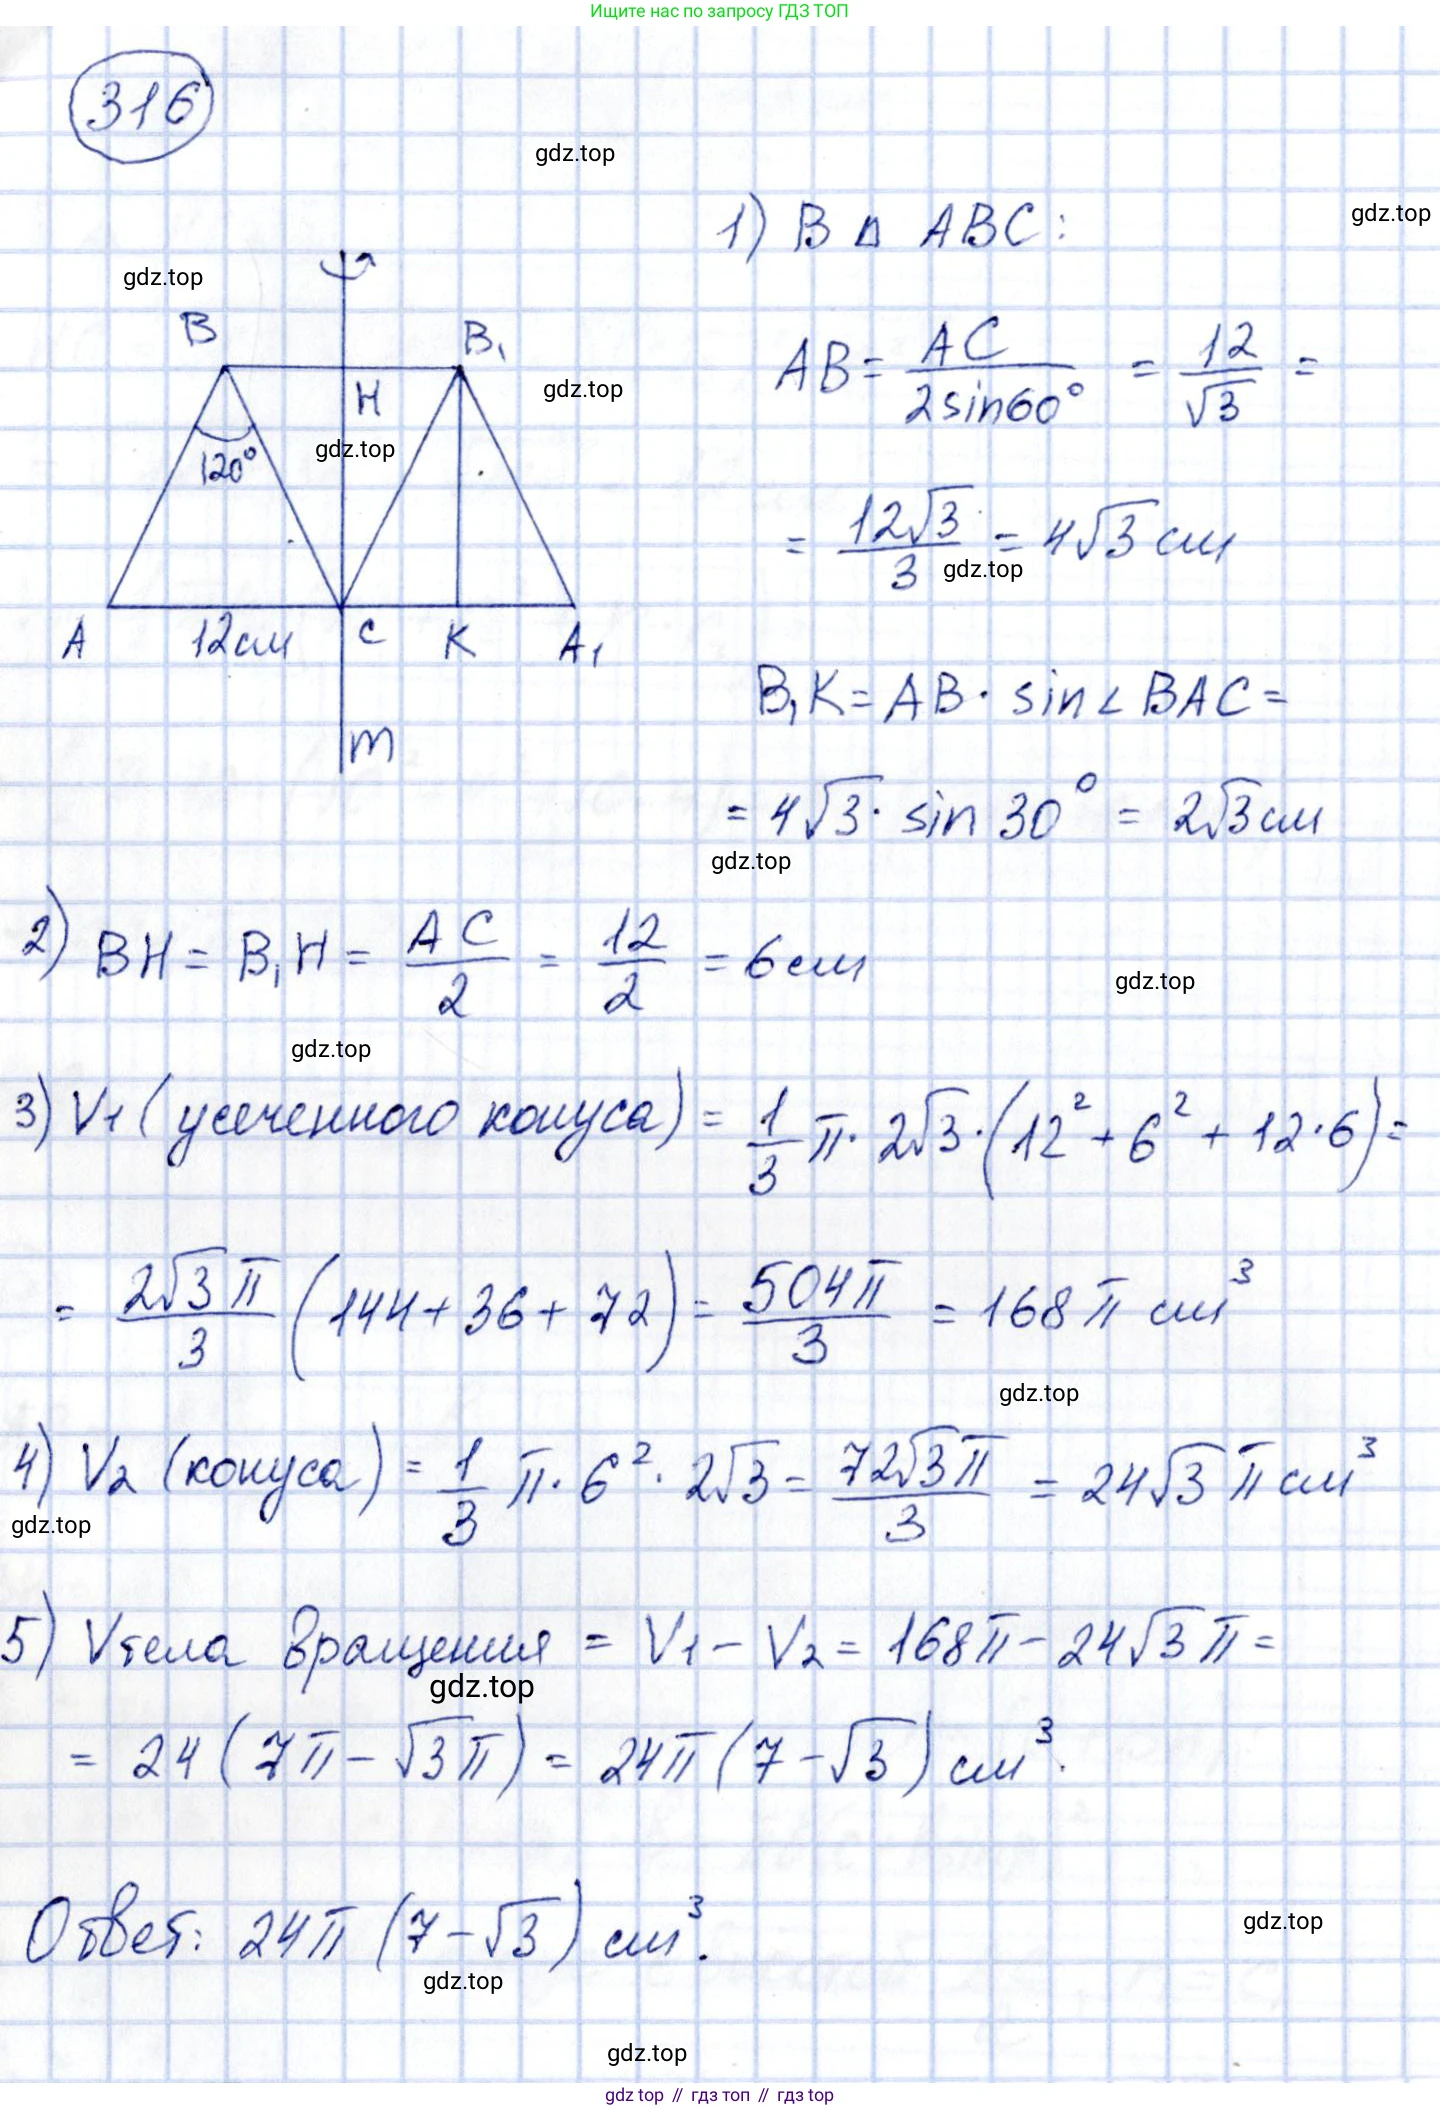 Ищите нас по запросу ГДЗ ТОП
316
gdz.top
gdz.top
1) В △ ABC:
gdz.top
B
B₁
AB = AC / 2sin60° = 12 / √3 =
H
gdz.top
120°
gdz.top
= 12√3 / 3 = 4√3 см
gdz.top
A 12см C K A₁
B₁K = AB · sin∠BAC =
m
= 4√3 · sin 30° = 2√3 см
gdz.top
2) BH = B₁H = AC / 2 = 12 / 2 = 6 см
gdz.top
gdz.top
3) V₁ (усеченного конуса) = 1/3 π · 2√3 · (12² + 6² + 12·6) =
= 2√3π / 3 (144 + 36 + 72) = 504π / 3 = 168π см³
gdz.top
4) V₂ (конуса) = 1/3 π · 6² · 2√3 = 72√3π / 3 = 24√3π см³
gdz.top
5) Vтела вращения = V₁ − V₂ = 168π − 24√3π =
gdz.top
= 24(7π − √3π) = 24π(7 − √3) см³.
Ответ: 24π(7 − √3) см³.
gdz.top
gdz.top
gdz.top
gdz top // гдз топ // гдз top